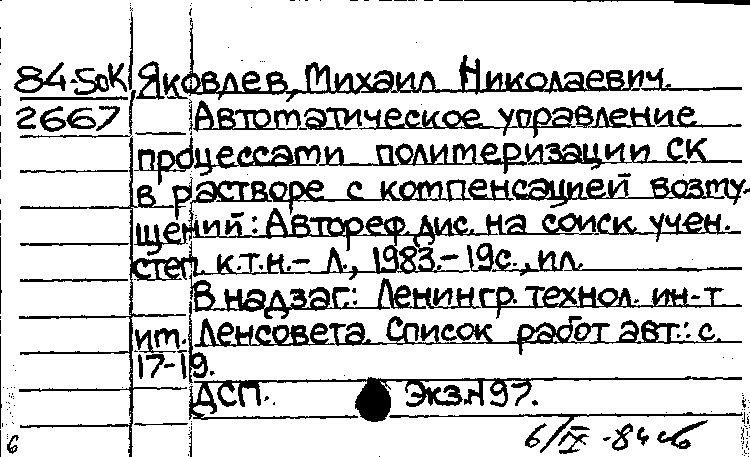 84-5оК Яковлев, Михаил Николаевич.
2667 Автоматическое управление
процессами полимеризации СК
в растворе с компенсацией возму-
щений: Автореф. дис. на соиск. учен.
степ. к.т.н. - Л., 1983. - 19с., ил.
В надзаг.: Ленингр. технол. ин-т
им. Ленсовета. Список работ авт.: с.
17-19.
ДСП. Экз.№97.
6/IX -84
6